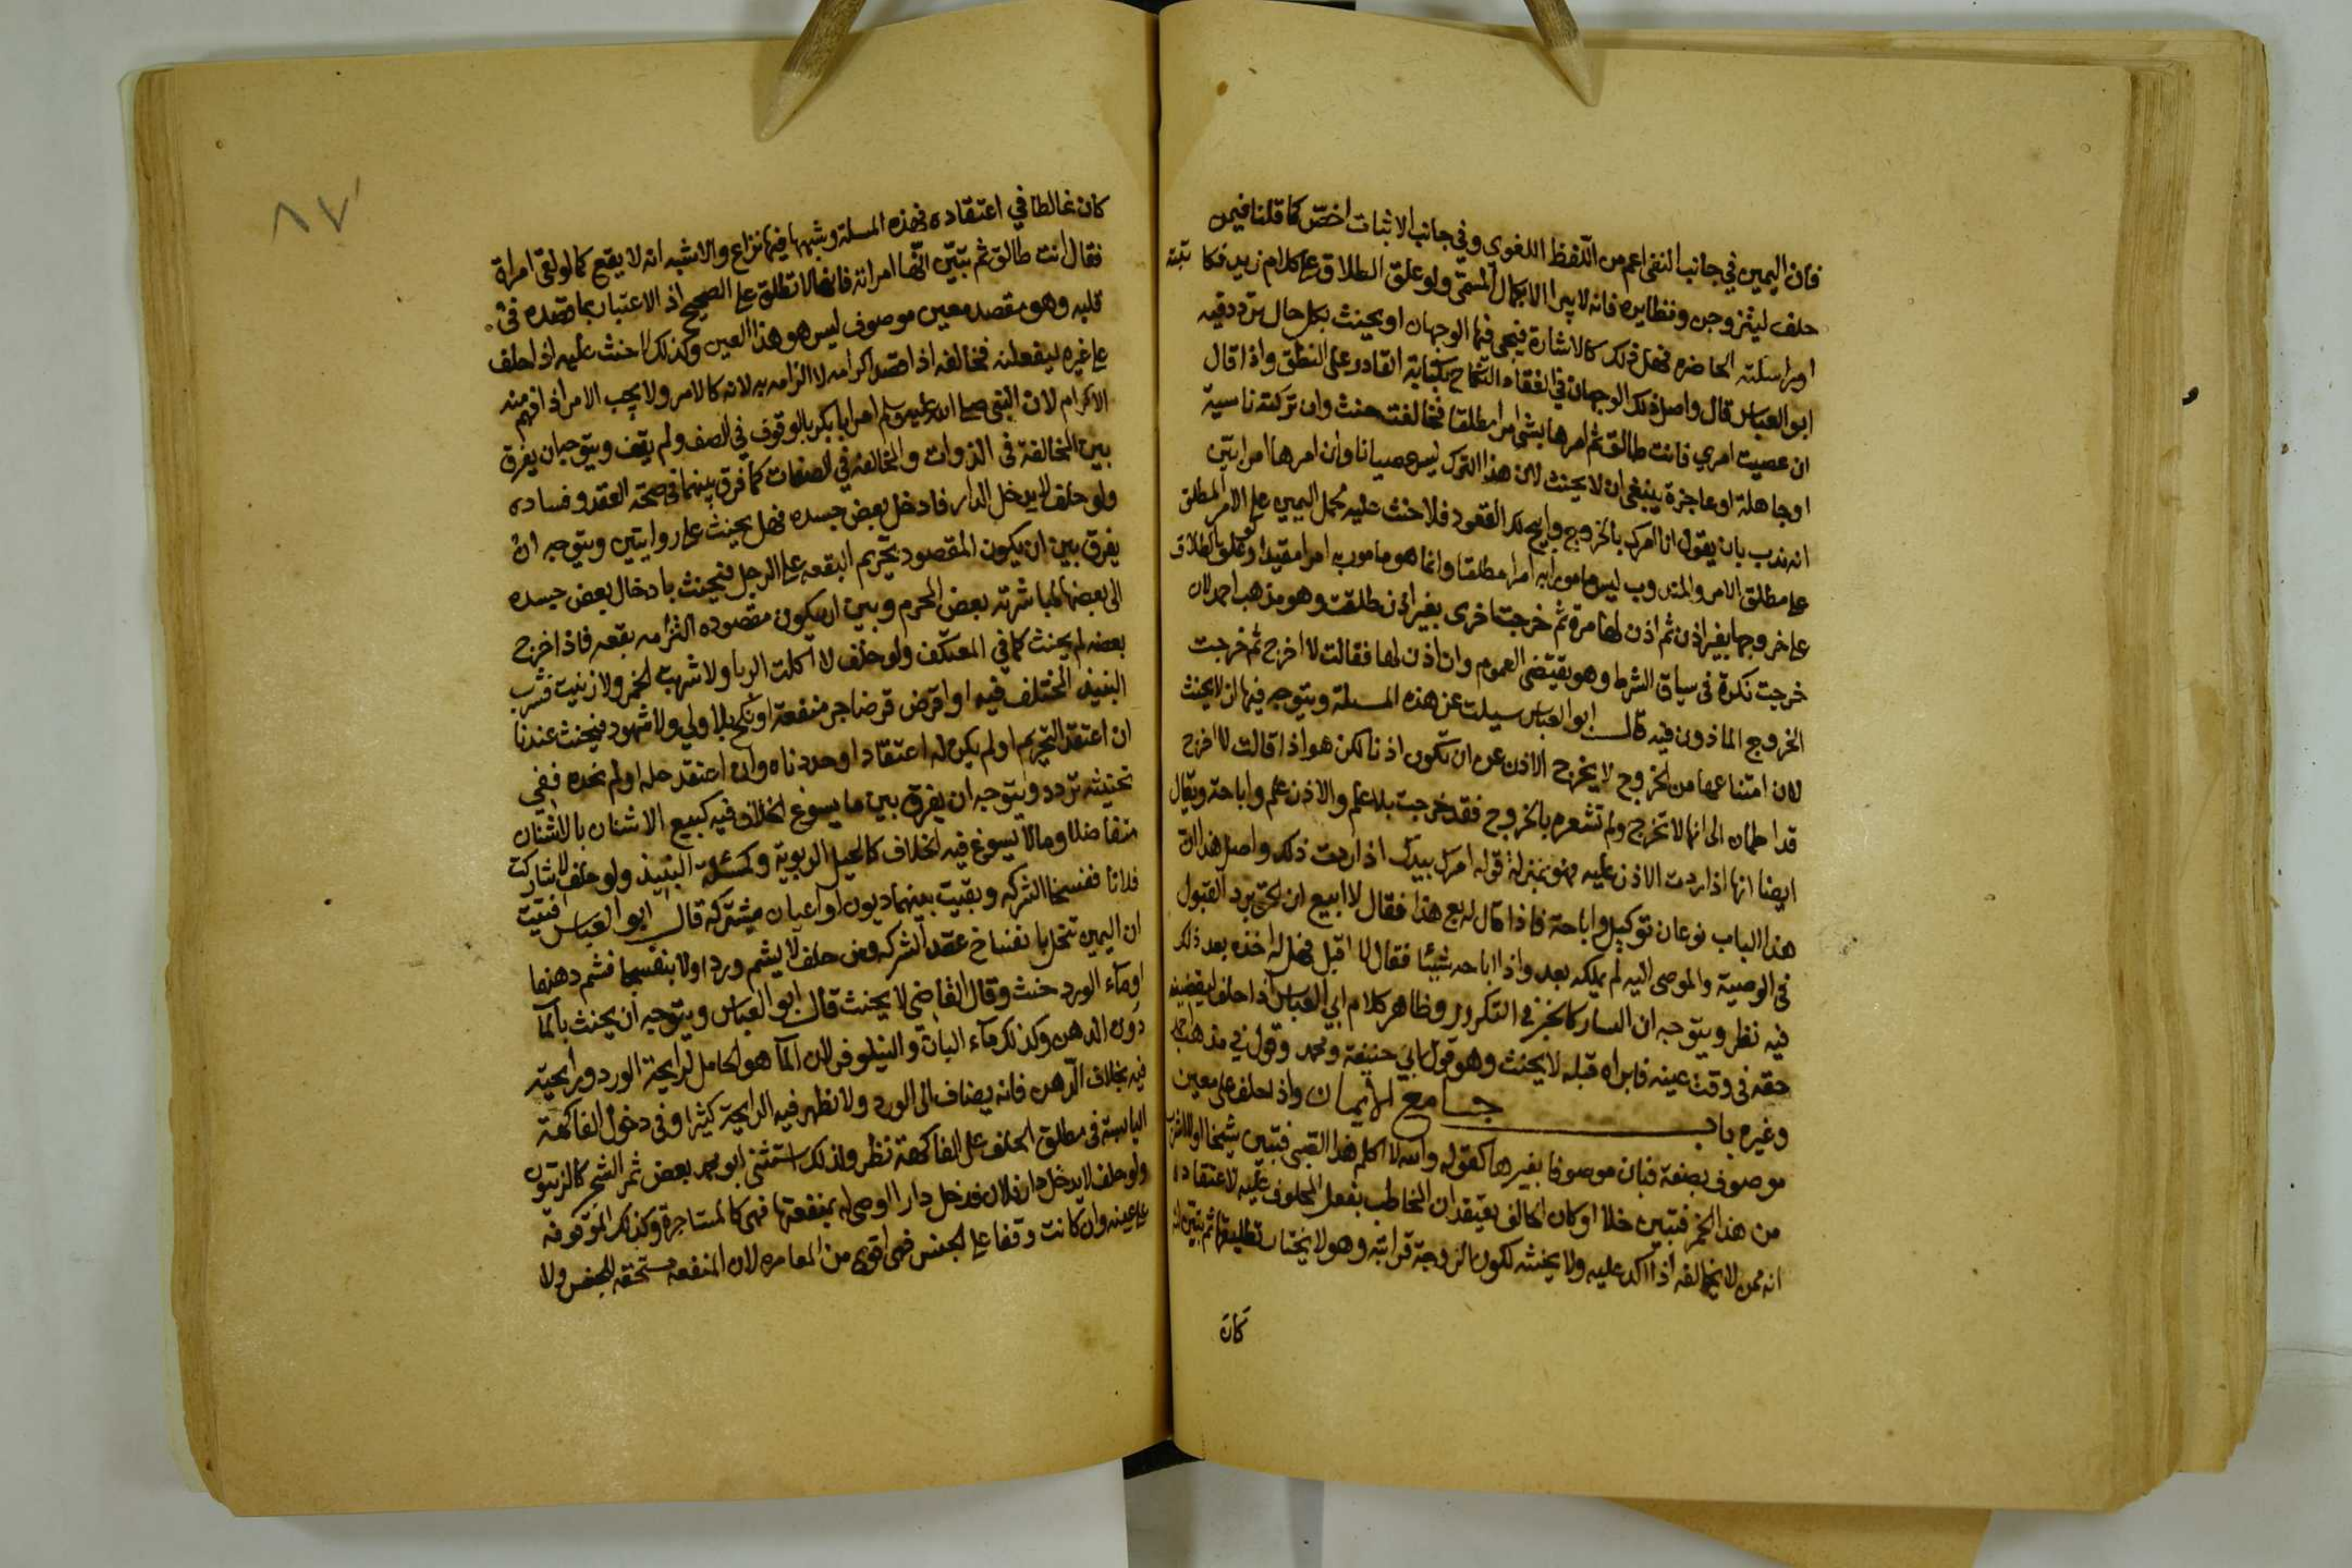 فان اليمين في جانب النفي اعم من اللفظ اللغوي وفي جانب الاثبات اخص كما قلنا فيمن
حلف ليتزوجن ونظايره فانه لا يبرا الا بكمال المسمى ولو علق الطلاق على كلام زيد فكاتبته
او راسلته الحاضره فهل ذلك كالاشارة فيجي فيها الوجهان او يحنث بكل حال تردد فيه
ابو العباس قال واصل ذلك الوجهان في انعقاد النكاح بكتابة القادر على النطق واذا قال
ان عصيت امري فانت طالق ثم امرها بشي امرا مطلقا فخالفت حنث وان تركته ناسية
او جاهلة او عاجزة ينبغي ان لا يحنث لان هذا الترك ليس عصيانا وان امرها امرا بين
انه ندب بان يقول انا امرك بالخروج وابيح لك القعود فلا حنث عليه لحمل اليمين على الامر المطلق
على مطلق الامر والمندوب ليس مامورا به امرا مطلقا وانما هو مامور به امرا مقيدا ولو علق الطلاق
على خروجها بغير اذن ثم اذن لها مرة ثم خرجت اخرى بغير اذن طلقت وهو مذهب احمد لان
خرجت نكرة في سياق الشرط وهو يقتضي العموم وان اذن لها فقالت لا اخرج ثم خرجت
الخروج الماذون فيه قال ابو العباس سيلت عن هذه المسيلة ويتوجه فيها ان لا يحنث
لان امتناعها من الخروج لا يخرج الاذن عن ان تكون اذنا لكن هو اذا قالت لا اخرج
قد اطمان الى انها لا تخرج ولم تشعره بالخروج فقد خرجت بلا علم والاذن علم واباحة ويقال
ايضا انها اذا ردت الاذن عليه فهو بمنزلة قوله امرك بيدك اذا ردت ذلك واصل هذا ان
هذا الباب نوعان توكيل واباحة فاذا قال له بع هذا فقال لا ابيع ان لحق برد القبول
في الوصية والموصى اليه لم يملكه بعد واذا اباحه شيئا فقال لا اقبل فهل له اخذه بعد ذلك
فيه نظر ويتوجه ان السار كالخبز في التكرير وظاهر كلام ابي العباس اذا حلف ليقضينه
حقه في وقت عينه فابراه قبله لا يحنث وهو قول ابي حنيفة ومحمد وقول في مذهب
وغيره باب جامع الايمان واذا حلف على معين
موصوف بصفة فبان موصوفا بغيرها كقوله والله لا اكلم هذا الصبي فتبين شيخا او لا اشرب
من هذا الخمر فتبين خلا او كان الحالف يعتقد ان المخاطب يفعل المحلوف عليه لاعتقاده
انه ممن لا يخالفه اذا اكد عليه ولا يحنثه لكون الزوجة قرابته وهو لا يختار تطليقها ثم تبين انه
كان
٨٧
كان غالطا في اعتقاده فهذه المسلة وشبهها فيها نزاع والاشبه انه لا يقع كما لو لقي امراة
فقال انت طالق ثم تبين انها امراته فانها لا تطلق على الصحيح اذ الاعتبار بما قصده في
قلبه وهو مقصد معين موصوف ليس هو هذا العين وكذلك لا حنث عليه اذا حلف
على غيره ليفعلنه فخالفه اذا قصد اكرامه لا الزامه به لانه كالامر ولا يجب الامر اذا فهم منه
الاكرام لان النبي صلى الله عليه وسلم امر ابا بكر بالوقوف في الصف ولم يقف ويتوجه ان يفرق
بين المخالفة في الذوات والمخالفة في الصفات كما فرق بينهما في صحة العقد وفساده
ولو حلف لا يدخل الدار فادخل بعض جسده فهل يحنث على روايتين ويتوجه ان
يفرق بين ان يكون المقصود تحريم البقعه على الرجل فيحنث بادخال بعض جسده
الى بعضها لمباشرته بعض المحرم وبين ان يكون مقصوده التزامه بقعه فاذا اخرج
بعضه لم يحنث كما في المعتكف ولو حلف لا اكلت الربا ولا شربت الخمر ولا زنيت فشرب
النبيذ المختلف فيه او اقرض قرضا جر منفعة او نكح بلا ولي ولا شهود فيحنث عندنا
ان اعتقد التحريم او لم يكن له اعتقاد او حددناه وان اعتقد حله او لم نحده ففي
تحنيثه تردد ويتوجه ان يفرق بين ما يسوغ الخلاف فيه كبيع الاشنان بالاشنان
متفاضلا وما لا يسوغ فيه الخلاف كالحيل الربوية وكمسئلة النبيذ ولو حلف لا شاركت
فلانا ففسخا الشركه وبقيت بينهما ديون او اعيان مشتركه قال ابو العباس فتيت
ان اليمين تنحل بانفساخ عقد الشركه ومن حلف لا يشم وردا ولا بنفسجا فشم دهنهما
او ماء الورد حنث وقال القاضي لا يحنث قال ابو العباس ويتوجه ان يحنث بالما
دون الدهن وكذلك ماء البان والنيلوفر لان الما هو الحامل لرايحة الورد ورايحته
فيه بخلاف الدهن فانه يضاف الى الورد ولا تظهر فيه الرايحة كثيرا وفي دخول الفاكهة
اليابسة في مطلق الحلف على الفاكهة نظر ولذلك استثنى ابو محمد بعض ثمر الشجر كالزيتون
ولو حلف لا يدخل دار فلان فدخل دارا اوصى له بمنفعتها فهي كالمستاجرة وكذلك الموقوفة
على عينه وان كانت وقفا على الجنس فهي اقوى من المعامره لان المنفعه مستحقه للجنس ولا